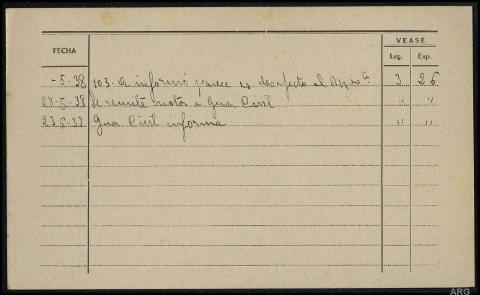 VEASE
FECHA Leg. Exp.
-5-38 103- informó parece es desafecto al 3 26
-5-38 Se remite nota a Gua Civil " "
23-5-38 Gua Civil informa " "
ARG